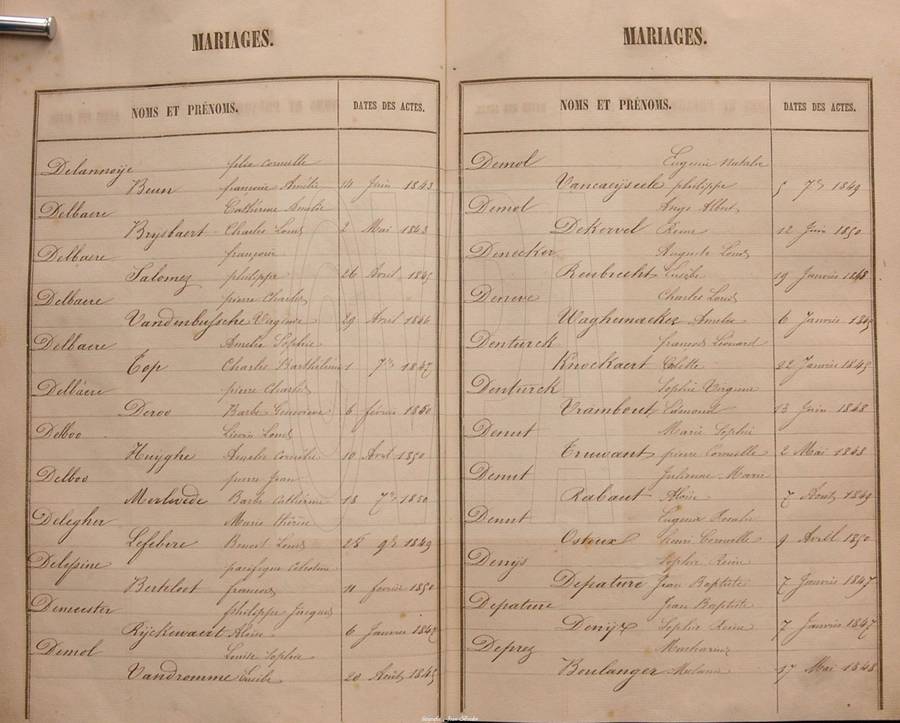 MARIAGES.
NOMS ET PRÉNOMS. DATES DES ACTES.
Delannoÿe felix corneille
Beun françoise Amélie 14 Juin 1843
Delbaere Catherine Amelie
Brysbaert Charles Louis 2 Mai 1843
Delbaere françoise
Salomez philippe 26 Avril 1845
Delbaere pierre Charles
Vandenbussche Virginie 29 Avril 1846
Delbaere Amelie Sophie
Top Charles Barthélémi 1 7bre
Delbaere pierre Charles
Deroo Barbe Genevieve 6 fevrier 1850
Delboo Lievin Louis
Huÿghe Amelie cornelie 10 Avril 1850
Delboo pierre Jean
Merlevede Barbe Catherine 18 7bre 1850
Delegher Marie thérèse
Lefebvre Benoit Louis 28 9bre 1849
Delepine pacifique Celestine
Berteloot francois 11 fevrier 1850
Demeester philippe Jacques
Rÿckewaert Aloise 6 Janvier
Demol Louise Sophie
Vandromme Lucien 20 Août 1845
MARIAGES.
NOMS ET PRÉNOMS. DATES DES ACTES.
Demol Eugenie Natalie
Vancaeÿseele philippe 5 7bre 1849
Demol Ange Albert
Dekervel Reine 12 Juin 1850
Denecker Auguste Louis
Reubrecht Lucie 19 Janvier 1848
Deneve Charles Louis
Waghemacker Amelie 6 Janvier 1845
Denturck francois Léonard
Knockaert Colette 22 Janvier 1845
Denturck Sophie Virginie
Vrambout Edmond 13 Juin 1848
Denut Marie Sophie
Truwant pierre Corneille 2 Mai 1848
Denut Julienne Marie
Rabaut Aloïse 7 Août 1849
Denut Eugenie Rosalie
Osteux henri Corneille 9 Avril 1850
Denÿs Sophie Reine
Depature Jean Baptiste 7 Janvier 1847
Depature Jean Baptiste
Denÿs Sophie Reine 7 Janvier 1847
Deprez
Boulanger Melanie 17 Mai 1848